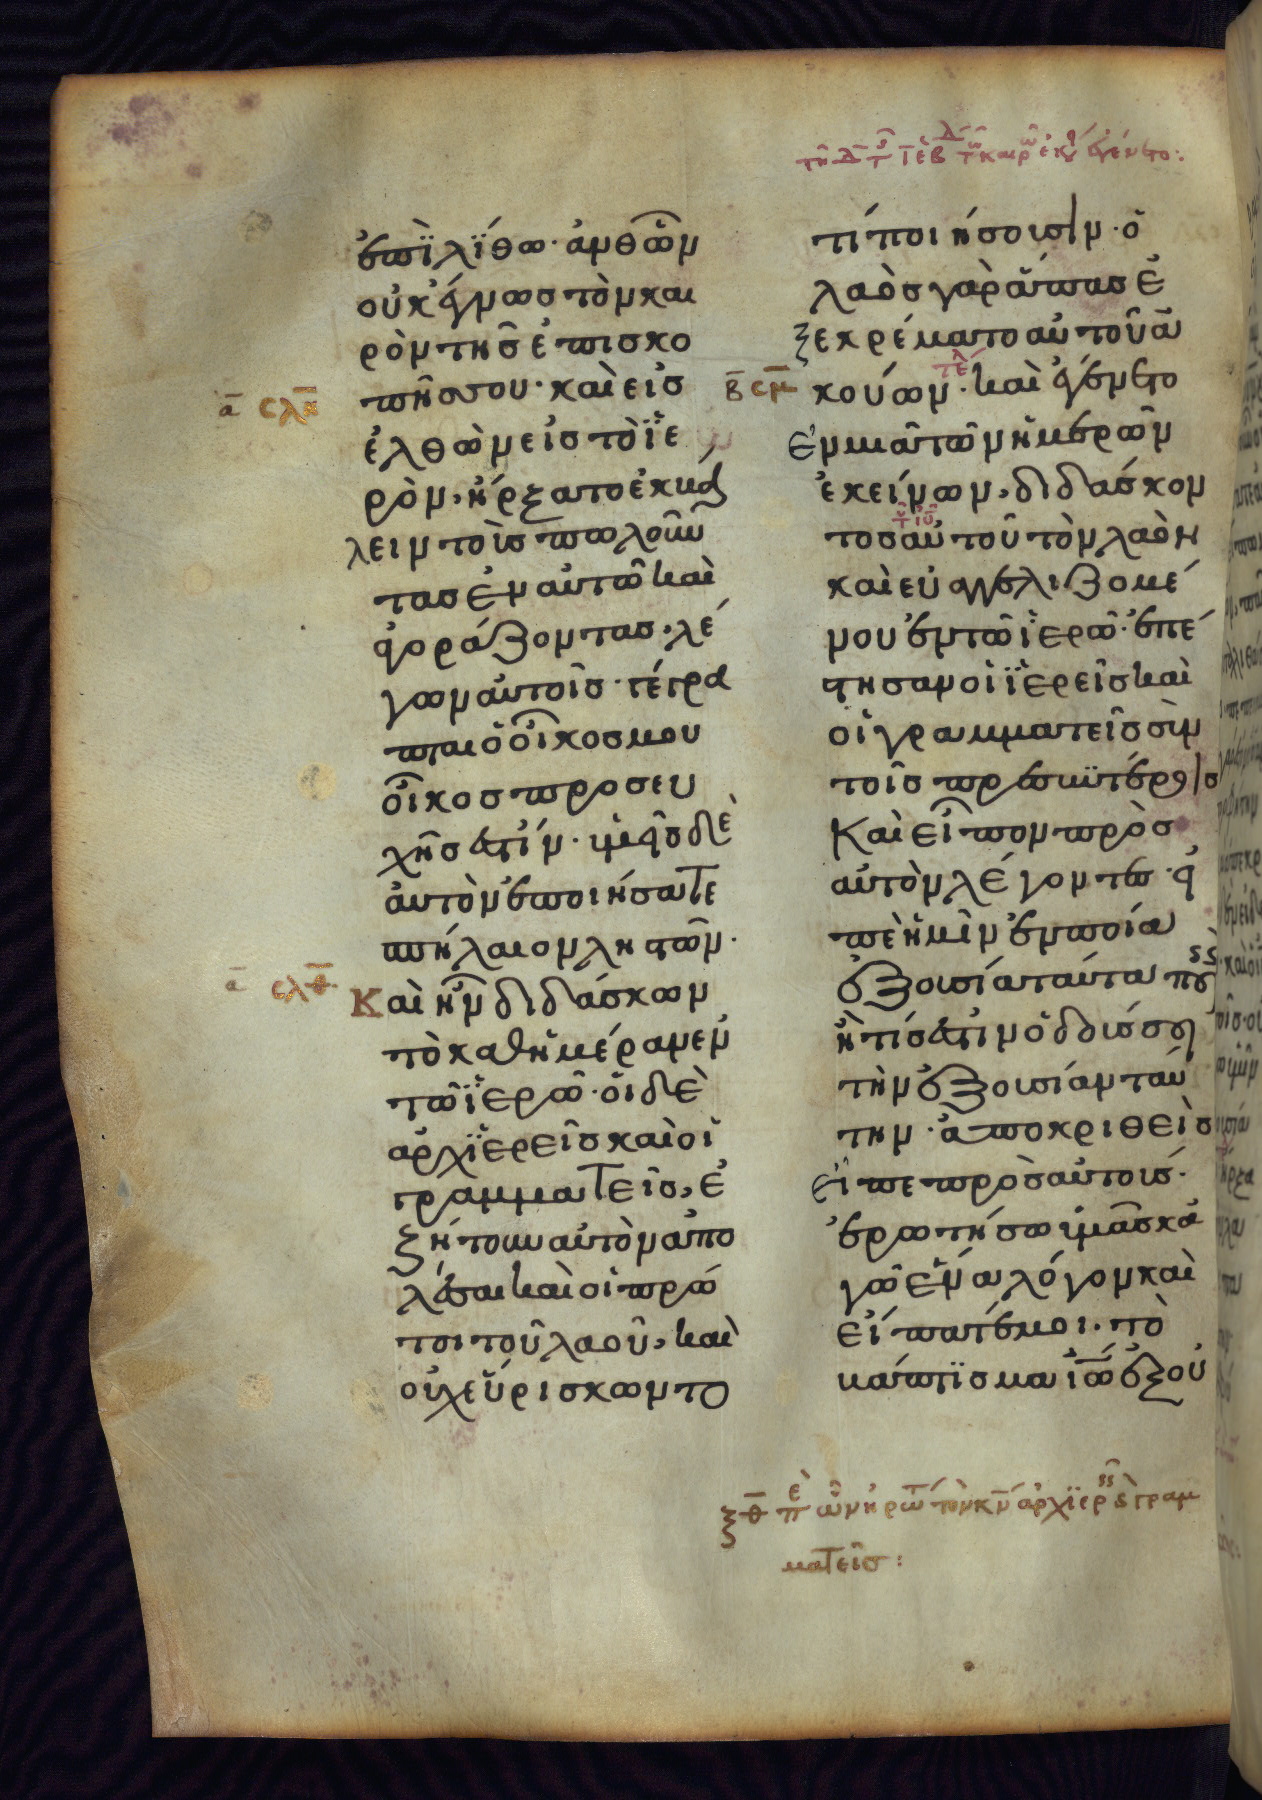 τῆ Δ τ ιε β τῶ καιρῶ ἐκ ἐγένετο:
ἐπὶ λίθω· ἀνθῶν
οὐκ ἔγνωσ τὸν και
ρὸν τῆσ ἐπισκο
πῆσ σου· καὶ εἰσ
ᾱ σλη
ἐλθὼν εἰσ τὸ ἱε
ρὸν, ἤρξατο ἐκβάλ
λειν τοῖσ πωλοῦν
τασ ἐν αὐτῶ καὶ
ἀγοράζοντασ, λέ
γων αὐτοῖσ· γέγρα
πται ὁ οἶκοσ μου
οἶκοσ προσευ
χῆσ ἐστίν· ὑμεῖσ δὲ
αὐτὸν ἐποιήσατε
σπήλαιον ληστῶν·
ᾱ σλθ
Καὶ ἦν διδάσκων
τὸ καθημέραν ἐν
τῶ ἱερῶ· οἱ δὲ
ἀρχιερεῖσ καὶ οἱ
γραμματεῖσ, ἐ
ζήτουν αὐτὸν ἀπο
λέσαι καὶ οἱ πρῶ
τοι τοῦ λαοῦ, καὶ
οὐχ εὕρισκον τὸ
τί ποιήσουσιν· ὁ
λαὸσ γὰρ ἅπασ ἐ
ξεκρέματο αὐτοῦ ἀ
β̄ σμ
κούων· τέλ καὶ ἐγένετο
ἐν μιᾶ τῶν ἡμερῶν
ἐκείνων, διδάσκον
τοσ αὐτοῦ τὸν λαὸν
τ ιυ
καὶ εὐαγγελιζομέ
νου ἐν τῶ ἱερῶ· ἐπέ
στησαν οἱ ἱερεῖσ καὶ
οἱ γραμματεῖσ σὺν
τοῖσ πρεσβυτέροισ
Καὶ εἶπον πρὸσ
αὐτὸν λέγοντεσ· εἰ
πὲ ἡμῖν ἐν ποία
ἐξουσία ταῦτα ποιεῖσ
ἢ τίσ ἐστιν ὁ δούσ σοι
τὴν ἐξουσίαν ταύ
την· ἀποκριθεὶσ
εἶπε πρὸσ αὐτούσ·
ἐρωτήσω ὑμᾶσ κἀ
γὼ ἕνα λόγον καὶ
εἴπατέ μοι· τὸ
βάπτισμα ἰω ἐξ οὐ
ξθ πε ῶν ἠρώτ τὸν κν ἀρχιερ ς γραμ
ματεῖσ: